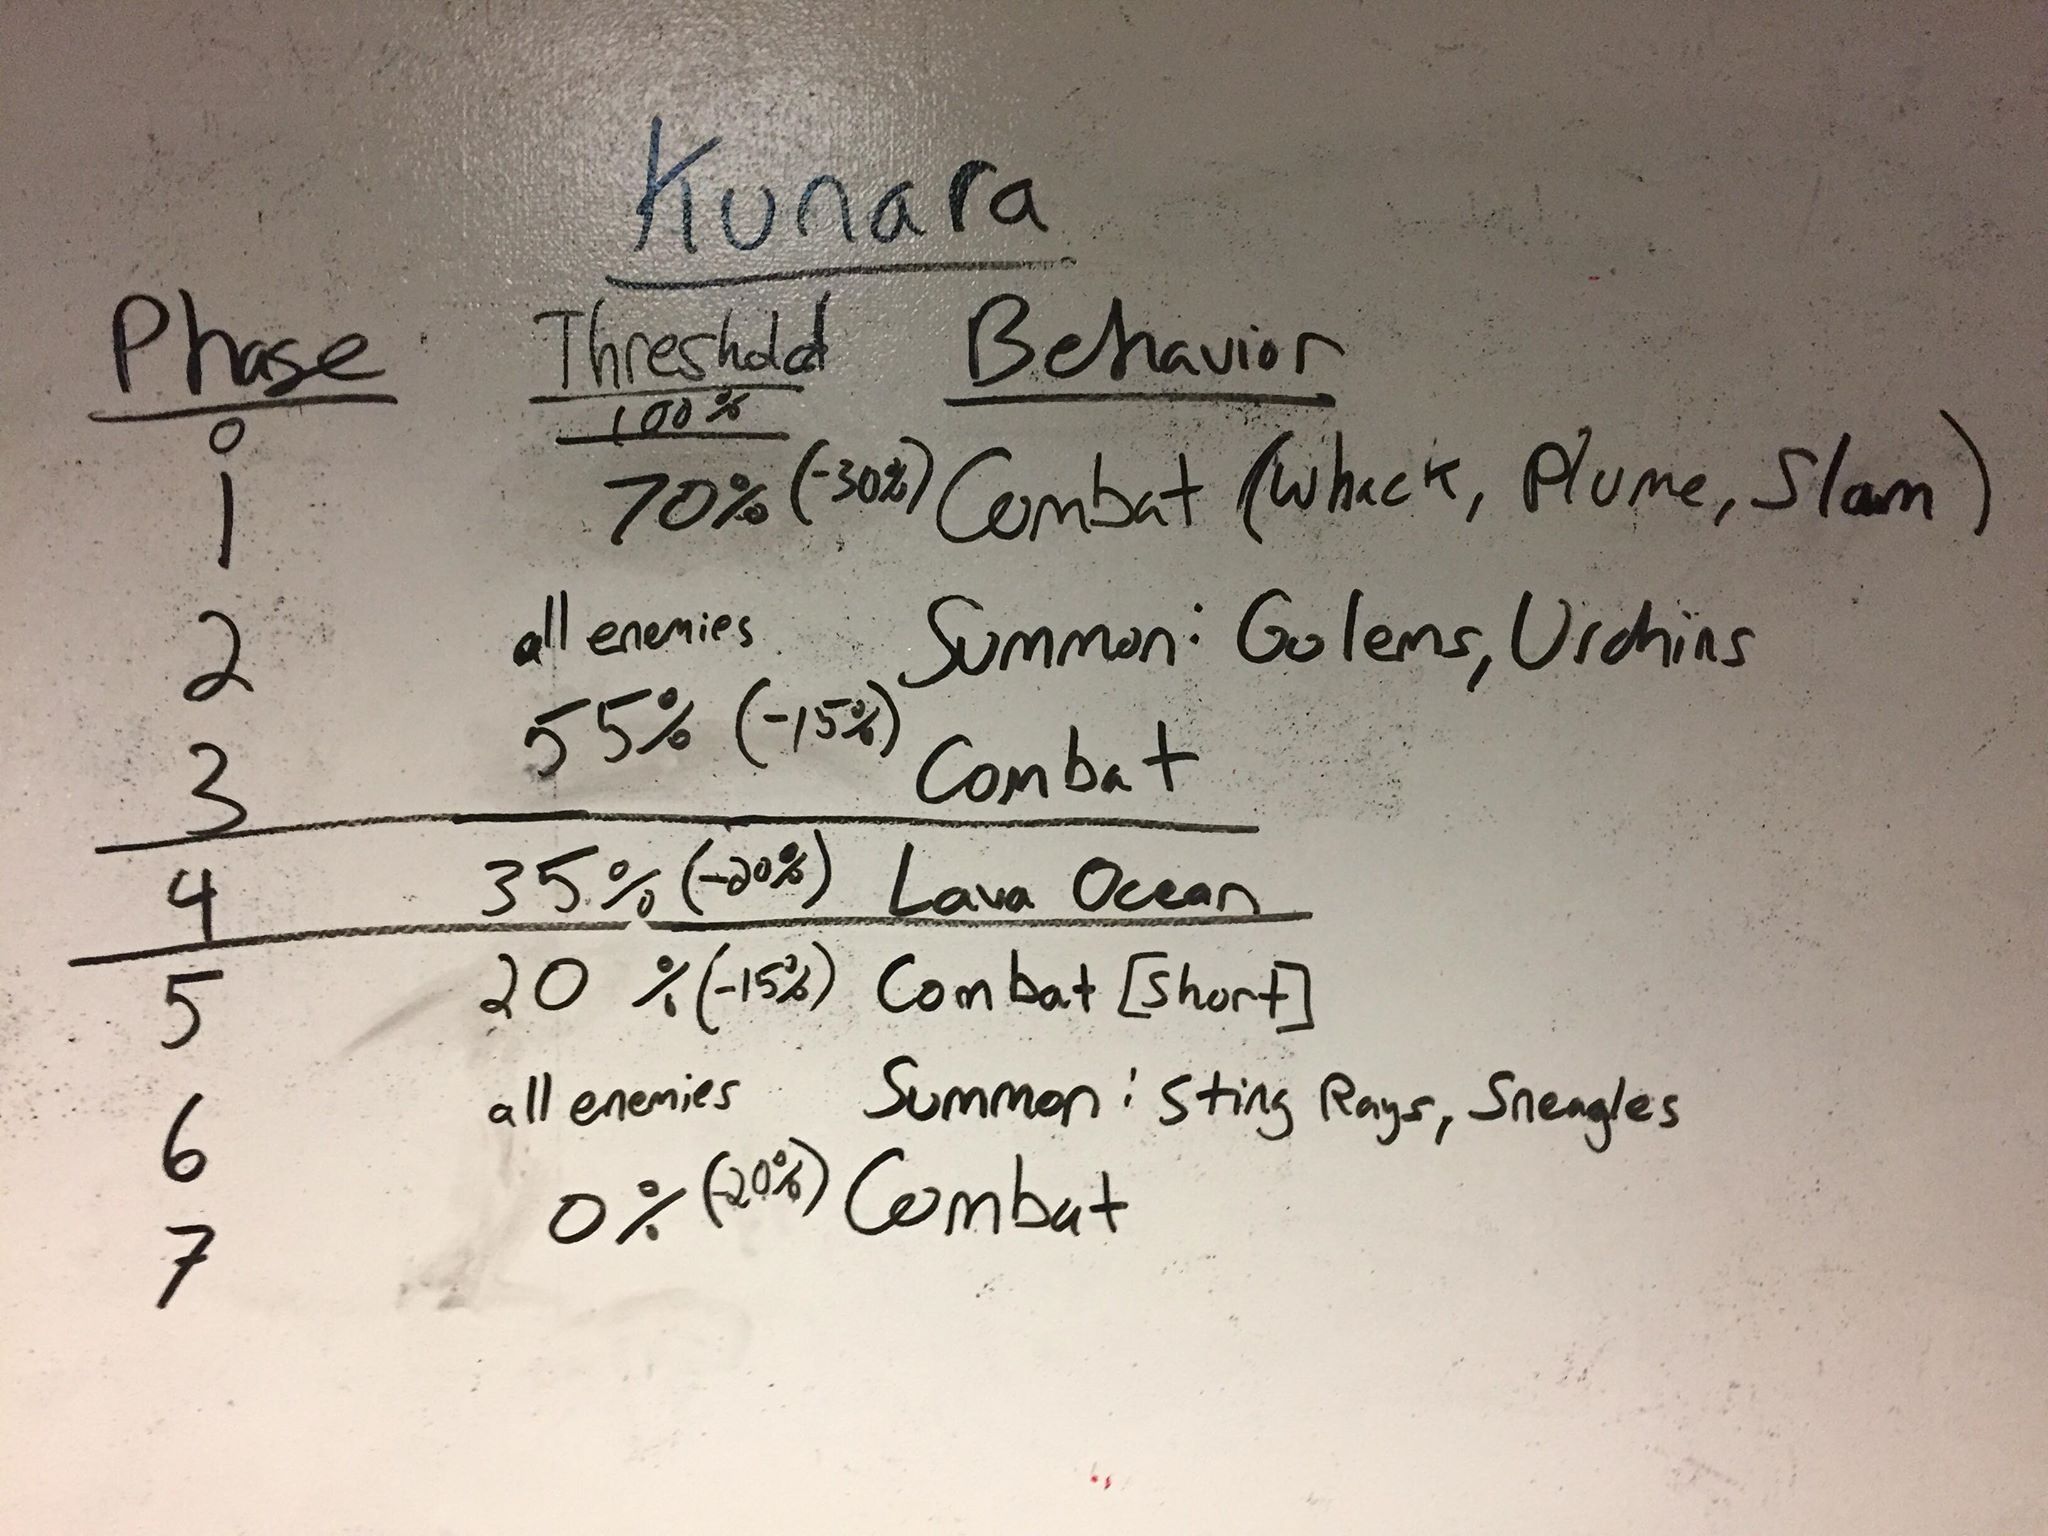 Kunara
Phase Threshold Behavior
0 100%
1 70% (-30%) Combat (Whack, Plume, Slam)
2 all enemies Summon: Golems, Urchins
3 55% (-15%) Combat
4 35% (-20%) Lava Ocean
5 20% (-15%) Combat [Short]
6 all enemies Summon: Sting Rays, Sneagles
7 0% (-20%) Combat